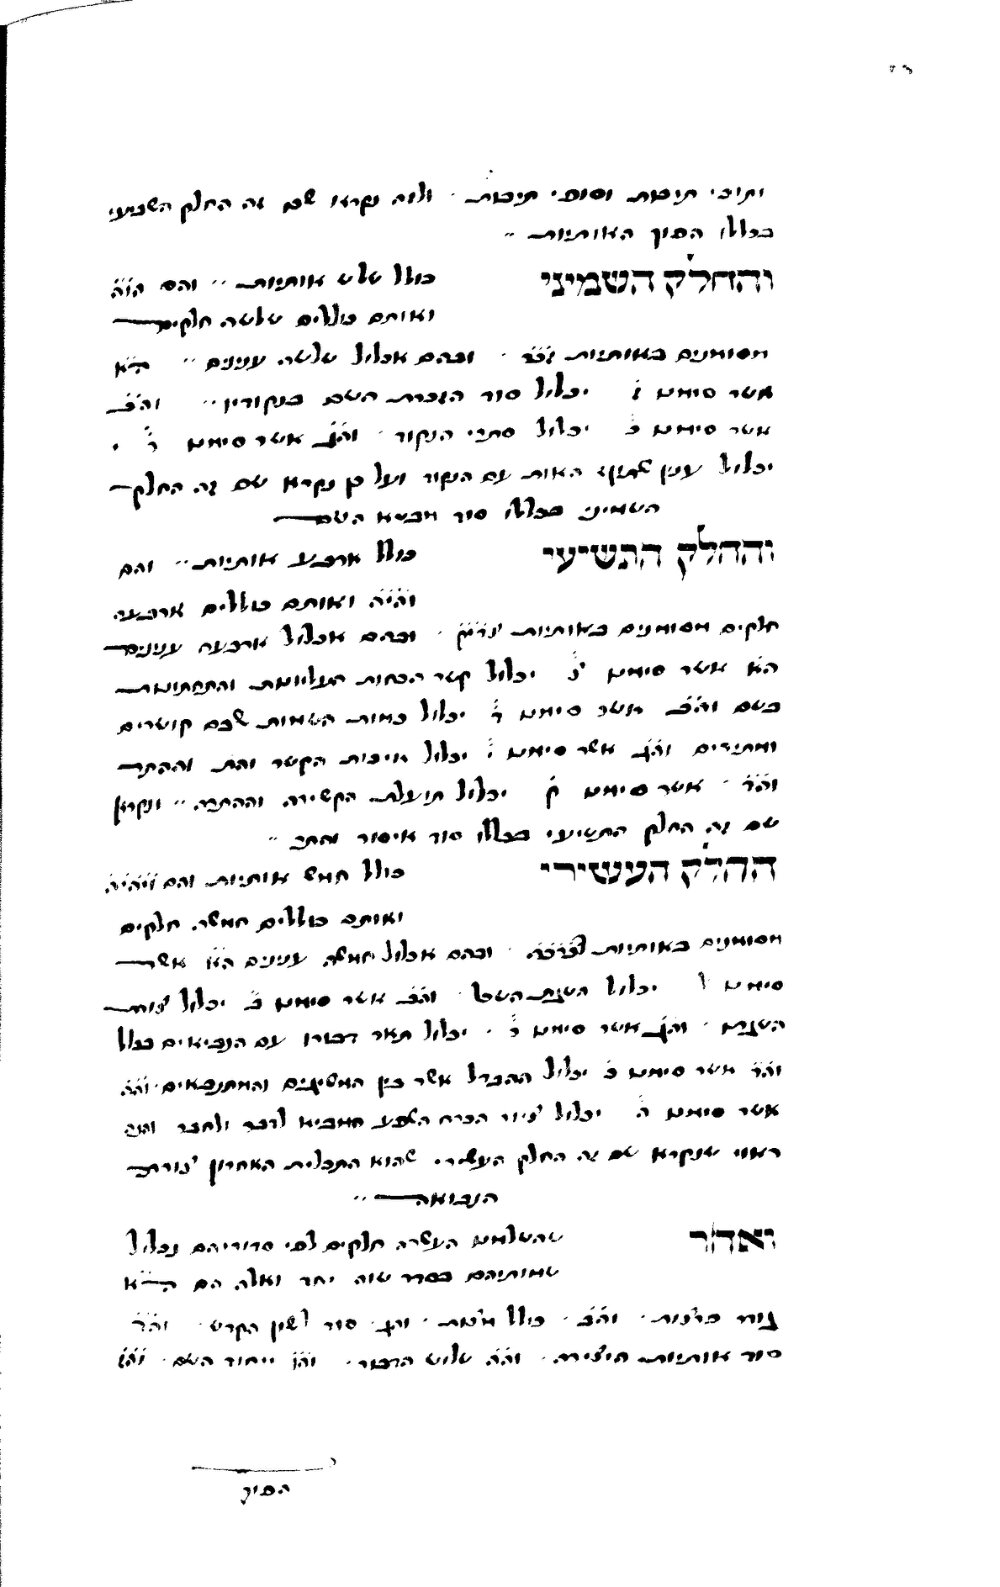 ותוכי תיבות וסופי תיבות ולזה נקרא שם זה החלק השביעי
בכללו הפוך האותיות
והחלק השמיני כולל שלש אותיות והם הו̇ה
ואותם כוללים שלשה חלקים
מסומנים באותיות ובהם אכלול שלשה ענינים הא
אשר סימנו ז יכלול סוד הזכרת השם בנקודיו והב
אשר סימנו כ יכלול סתרי הנקוד והג אשר סימנו ר
יכלול ענין האות עם הנקוד ועל כן נקרא שם זה החלק
השמיני בכללו סוד מבטא השם
והחלק התשיעי כולל ארבע אותיות והם
והיה ואותם כוללים ארבעה
חלקים מסומנים באותיות ובהם אכלול ארבעה ענינים
הא אשר סימנו צ יכלול קשר הכחות העליונות והתחתונות
בשם והב אשר סימנו ד יכלול כחות השמות שבם קושרים
ומתירים והג אשר סימנו י יכלול איכות הקשר וההתר
והד אשר סימנו ק יכלול תועלת הקשירה וההתרה ונקרא
שם זה החלק התשיעי בכללו סוד איסור והתר
החלק העשירי כולל חמש אותיות והם ויהיה
ואותם כוללים חמשה חלקים
מסומנים באותיות ובהם אכלול חמשה ענינים הא אשר
סימנו ל יכלול השגת השכל והב אשר סימנו כ יכלול צורת
השגתו והג אשר סימנו ר יכלול תאר דבורו עם הנביאים בכלל
והד אשר סימנו כ יכלול ההבדל אשר בין המשיגים והמתנבאים והה
אשר סימנו ה יכלול ציור הכרח השפע המביא לדבר ולחבר והנה
ראוי שנקרא שם זה החלק העשירי שהוא התכלית האחרון צורת
הנבואה
ואחר שהשלמנו העשרה חלקים לפי סדוריהם נכלול
שמותיהם בסדר שוה יחד ואלה הם הא
גוזר פרצות והב כולל מצות והג סוד לשון הקדש והד
סוד אותיות היצירה והה שלוש הדבור והו ייחוד השם והז
הפוך